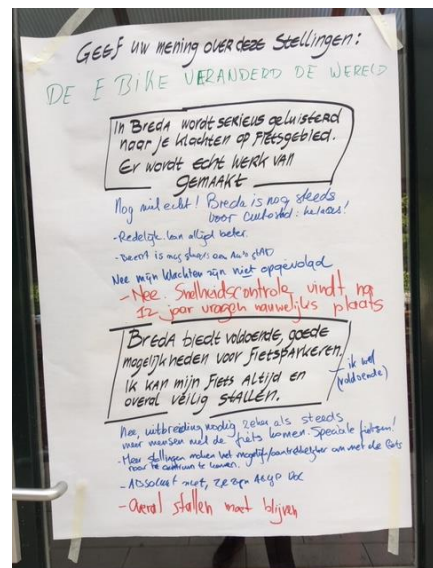 Geef uw mening over deze Stellingen:
DE E BIKE VERANDERD DE WERELD
In Breda wordt serieus geluisterd
naar je klachten op Fietsgebied.
Er wordt echt werk van
gemaakt
Nog niet echt! Breda is nog steeds
voor helaas!
- Redelijk kan altijd beter.
- is nog steeds een
Nee mijn klachten zijn niet opgevolgd
- Nee. Snelheidscontrole vindt na
12 jaar vragen nauwelijks plaats
Breda biedt voldoende, goede
mogelijkheden voor Fietsparkeren.
Ik kan mijn Fiets Altijd en
overal veilig stallen.
- ik wel
(voldoende)
Nee, uitbreiding nodig zeker als steeds
meer mensen met de fiets komen. Speciale fietsen!
- Meer stallingen maken het mogelijk/aantrekkelijker om met de fiets
naar te centrum te komen.
- Absoluut niet, ze zijn Altijd
- Overal stallen moet blijven